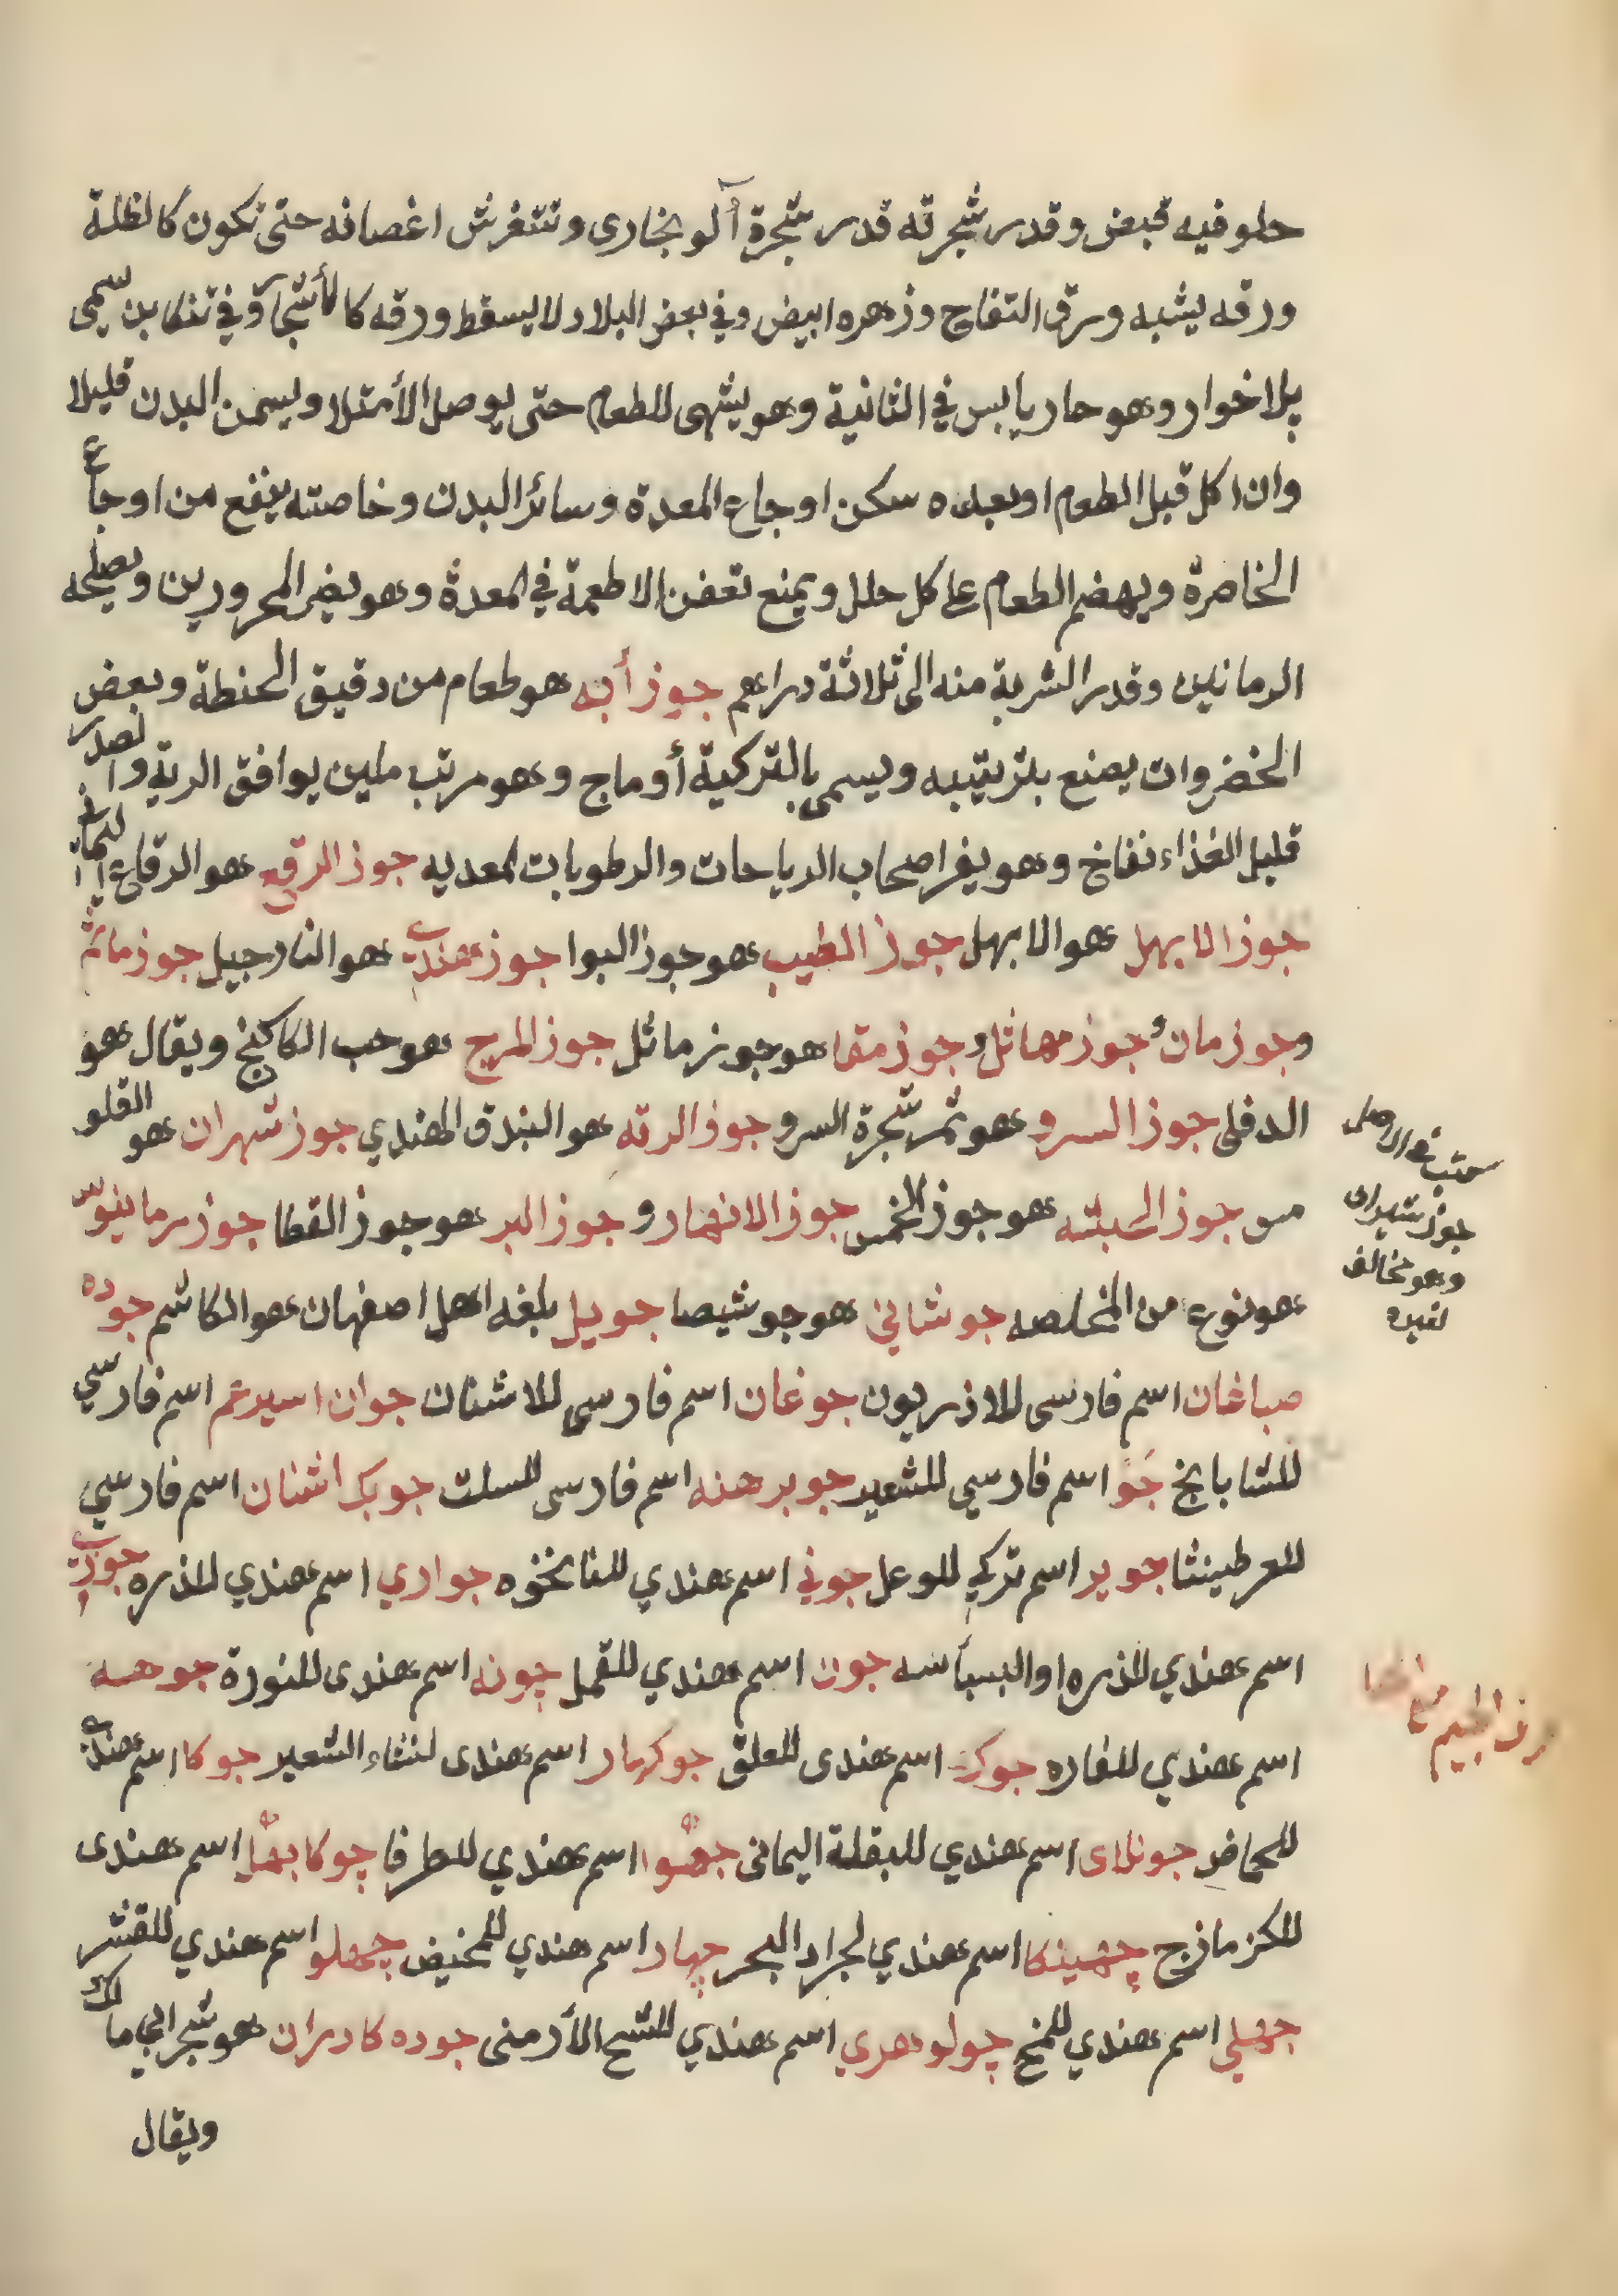 حلو فيه قبض وقدر شجرته قدر شجرة آلو بخارى وتتفرش اغصانه حتى تكون كالظلة
ورقه يشبه ورق التفاح وزهره ابيض وفي بعض البلاد لا يسقط ورقه كالأشجار وفي تنكابن سمى
پلاخوار وهو حار يابس في الثانية وهو يشهى للطعام حتى يوصل الأمتلا ويسمن البدن قليلا
وان اكل قبل الطعام او بعده سكن اوجاع المعدة وسائر البدن وخاصته ينفع من اوجاع
الخاصرة ويهضم الطعام على كل حال ويمنع تعفن الاطعمة في المعدة وهو يضر المحرورين ويصلحه
الرمانين وقدر الشربة منه الى ثلاثة دراهم جوز أبه هو طعام من دقيق الحنطة وبعض
الخضروات يصنع بترتيبه ويسمى بالتركية أوماج وهو مرتب ملين يوافق الرية والصدر
قليل الغذاء نفاخ وهو يضر اصحاب الرياحات والرطوبات المعديه جوز الرقع هو الرقاع اليمانى
جوز الابهل هو الابهل جوز الطيب هو جوز البوا جوز هندي هو النارجيل جوز ماثم
وجوز مان وجوز مهاثل وجوز مقا هو جوز ماثل جوز المرج هو حب الكاكنج ويقال هو
الدفلى جوز السرو هو ثمر شجرة السرو جوز الرته هو البندق الهندي جوز شهران هو القلو
مس جوز الحبشه هو جوز الخمس جوز الانهار وجوز البر هو جوز القطا جوز رمانيوس
هو نوع من المخلصه جوشاني هو جوشيصا جويل بلغه اهل اصفهان هو الكاشم جوده
صباغان اسم فارسى للاذريون جوغان اسم فارسى للاشنان جوان اسپرغم اسم فارسي
للشابابخ جَو اسم فارسي للشعير جوبرهنه اسم فارسى للسلت جوبك اشنان اسم فارسي
للعرطنيثا جوير اسم تركي للوعل جوني اسم هندي للنانخوه جواري اسم هندي للذره جوري
اسم هندي للذره او البسباسه جون اسم هندي للقمل چونه اسم هندى للنورة جوهه
اسم هندي للفاره جوك اسم هندى للعلق جوكهار اسم هندى لنشاء الشعير جوكا اسم هندي
للحماض جونلاى اسم هندي للبقلة اليمانى جهوا اسم هندي للطرفا چوكا بهل اسم هندى
للكزمازج چهينكا اسم هندي لجراد البحر چهار اسم هندي للمخيض چهلو اسم هندي للقشر
جهلي اسم هندي للمخ چولوهري اسم هندي للشيح الأرمنى جوده كادران هو شجر ابي مالك
ويقال
كتب في الاصل
جوز شهران
وهو مخالف
لقيده